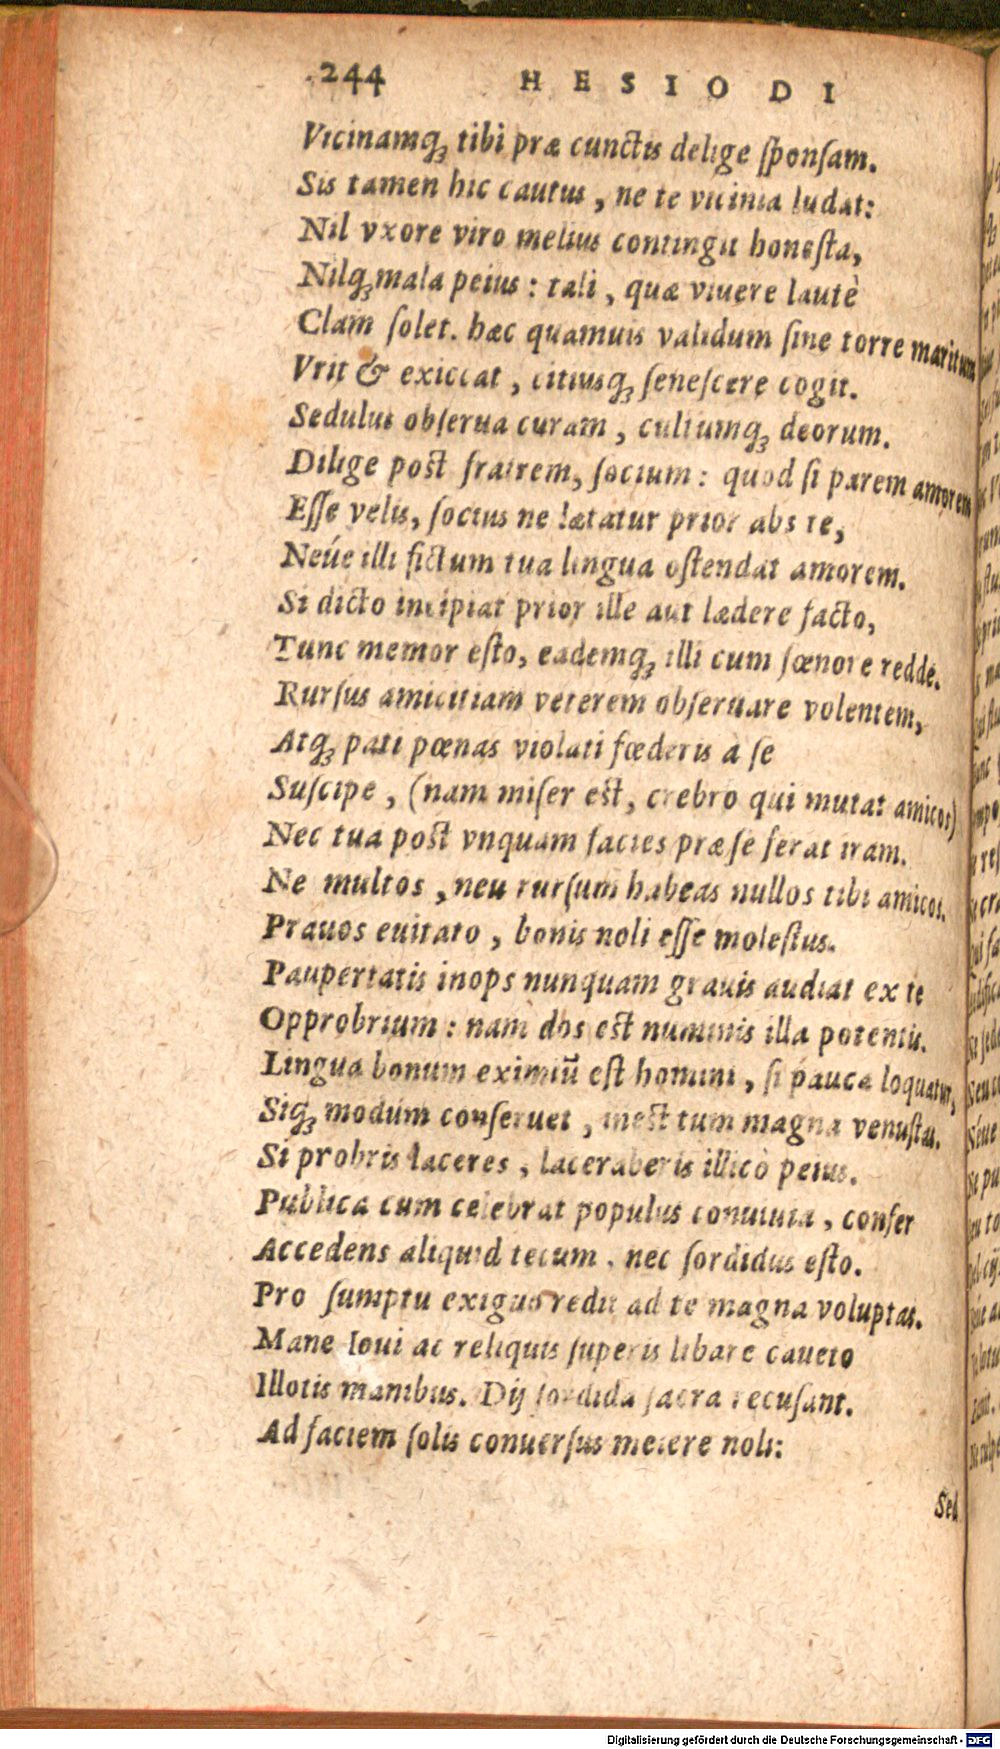 244 HESIODI
Vicinamq́; tibi præ cunctis delige ſponſam.
Sis tamen hic cautus, ne te vicinia ludat:
Nil vxore viro melius contingit honeſta,
Nilq́; mala peius: tali, quæ viuere lautè
Clam ſolet. hæc quamuis validum ſine torre maritum
Vrit & exiccat, citiusq́; ſeneſcere cogit.
Sedulus obſerua curam, cultumq́; deorum.
Dilige poſt fratrem, ſocium: quod ſi parem amorem
Eſſe velis, ſocius ne lætatur prior abs te,
Neúe illi fictum tua lingua oſtendat amorem.
Si dicto incipiat prior ille aut lædere facto,
Tunc memor eſto, eademq́; illi cum fœnore redde.
Rurſus amicitiam veterem obſeruare volentem,
Atq́; pati pœnas violati fœderis a ſe
Suſcipe, (nam miſer eſt, crebro qui mutat amicos)
Nec tua poſt vnquam facies præ ſe ferat iram.
Ne multos, neu rurſum habeas nullos tibi amicos.
Prauos euitato, bonis noli eſſe moleſtus.
Paupertatis inops nunquam grauis audiat ex te
Opprobrium: nam dos eſt numinis illa potentis.
Lingua bonum eximiū eſt homini, ſi pauca loquatur,
Siq́; modum conſeruet, ineſt tum magna venuſtas.
Si probris laceres, laceraberis illicò peius.
Publica cum celebrat populus conuiuia, confer
Accedens aliquid tecum, nec ſordidus eſto.
Pro ſumptu exiguo redit ad te magna voluptas.
Mane Ioui ac reliquis ſuperis libare caueto
Illotis manibus. Dij ſordida ſacra recuſant.
Ad faciem ſolis conuerſus meiere noli:
Sed
Digitalisierung gefördert durch die Deutsche Forschungsgemeinschaft - DFG